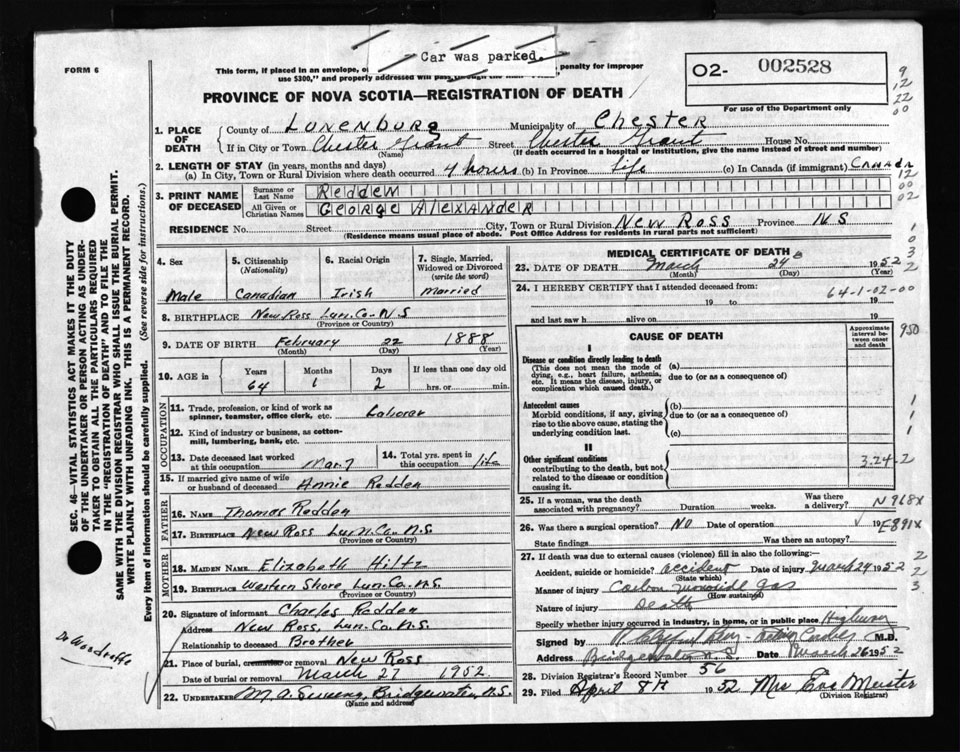 Car was parked.
FORM 6
This form, if placed in an envelope, penalty for improper
use $300," and properly addressed will pass
02- 002528
For use of the Department only
PROVINCE OF NOVA SCOTIA—REGISTRATION OF DEATH
9
12
22
00
1. PLACE OF DEATH
County of Lunenburg Municipality of Chester
If in City or Town Chester Grant Street Chester Grant House No.
(Name) (If death occurred in a hospital or institution, give the name instead of street and number)
2. LENGTH OF STAY (in years, months and days)
(a) In City, Town or Rural Division where death occurred 4 hours (b) In Province life (c) In Canada (if immigrant) Canada
12
00
02
3. PRINT NAME OF DECEASED
Surname or Last Name Redden
All Given or Christian Names George Alexander
RESIDENCE No. Street City, Town or Rural Division New Ross Province N S
(Residence means usual place of abode. Post Office Address for residents in rural parts not sufficient)
1
0
3
2
4. Sex Male
5. Citizenship (Nationality) Canadian
6. Racial Origin Irish
7. Single, Married, Widowed or Divorced (write the word) Married
8. BIRTHPLACE New Ross Lun. Co. N.S
(Province or Country)
9. DATE OF BIRTH February 22 1888
(Month) (Day) (Year)
10. AGE in Years Months Days If less than one day old
64 1 2 hrs. or min.
OCCUPATION
11. Trade, profession, or kind of work as spinner, teamster, office clerk, etc. Laborer
12. Kind of industry or business, as cotton-mill, lumbering, bank, etc.
13. Date deceased last worked at this occupation Mar. 7
14. Total yrs. spent in this occupation life
15. If married give name of wife or husband of deceased Annie Redden
FATHER
16. NAME Thomas Redden
17. BIRTHPLACE New Ross Lun. Co. N.S.
(Province or Country)
MOTHER
18. MAIDEN NAME Elizabeth Hiltz
19. BIRTHPLACE Western Shore Lun. Co. N.S
(Province or Country)
20. Signature of informant Charles Redden
Address New Ross, Lun. Co. N.S.
Relationship to deceased Brother
21. Place of burial, cremation or removal New Ross
Date of burial or removal March 27 1952
22. UNDERTAKER Bridgewater, N.S.
(Name and address)
MEDICAL CERTIFICATE OF DEATH
23. DATE OF DEATH March 24 1952
(Month) (Day) (Year)
24. I HEREBY CERTIFY that I attended deceased from:
64-1-02-00
19 to 19
and last saw h alive on 19
CAUSE OF DEATH
Approximate interval between onset and death
950
I
Disease or condition directly leading to death
(This does not mean the mode of dying, e.g., heart failure, asthenia, etc. It means the disease, injury, or complication which caused death.)
(a)
due to (or as a consequence of)
Antecedent causes
Morbid conditions, if any, giving rise to the above cause, stating the underlying condition last.
(b)
due to (or as a consequence of)
(c)
1
1
II
Other significant conditions
contributing to the death, but not related to the disease or condition causing it.
3-24-2
25. If a woman, was the death associated with pregnancy? Duration weeks. Was there a delivery? N968X
26. Was there surgical operation? No Date of operation 19 E891X
State findings Was there an autopsy?
27. If death was due to external causes (violence) fill in also the following:
Accident, suicide or homicide? accident Date of injury March 24 1952
(State which)
Manner of injury Carbon monoxide gas
(How sustained)
Nature of injury Death
Specify whether injury occurred in industry, in home, or in public place Highway
2
2
3
Signed by M.D.
Address Bridgewater N.S. Date March 26 1952
28. Division Registrar's Record Number 56
29. Filed April 8th 1952 Mrs Eva Meister
(Division Registrar)
SEC. 46—VITAL STATISTICS ACT MAKES IT THE DUTY
OF THE UNDERTAKER OR PERSON ACTING AS UNDER-
TAKER TO OBTAIN ALL THE PARTICULARS REQUIRED
IN THE "REGISTRATION OF DEATH" AND TO FILE THE
SAME WITH THE DIVISION REGISTRAR WHO SHALL ISSUE THE BURIAL PERMIT.
WRITE PLAINLY WITH UNFADING INK. THIS IS A PERMANENT RECORD.
Every item of information should be carefully supplied. (See reverse side for instructions.)